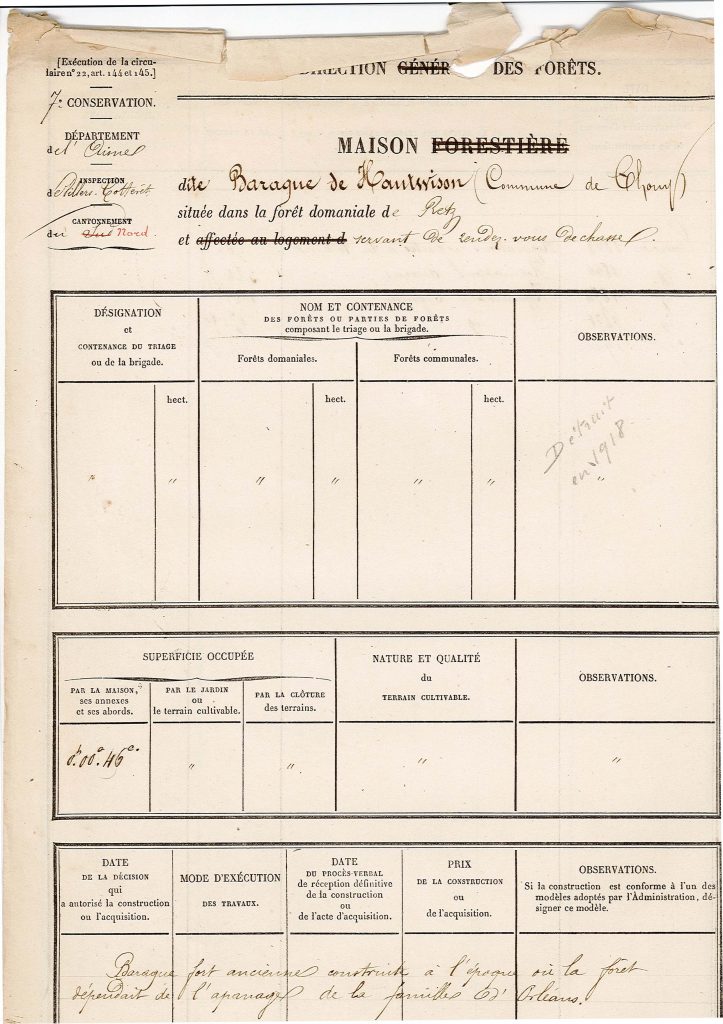 [Exécution de la circu-
laire n° 22, art. 144 et 145.]
DIRECTION GÉNÉR DES FORÊTS.
7e CONSERVATION.
DÉPARTEMENT
de l'Aisne
INSPECTION
de Villers-Cotterêt
CANTONNEMENT
du Sud Nord.
MAISON FORESTIÈRE
dite Baraque de Hautwison (Commune de Chouy)
située dans la forêt domaniale de Retz
et affectée au logement d servant de rendez-vous de chasse.
DÉSIGNATION
et
CONTENANCE DU TRIAGE
ou de la brigade.
NOM ET CONTENANCE
DES FORÊTS OU PARTIES DE FORÊTS
composant le triage ou la brigade.
Forêts domaniales.
Forêts communales.
OBSERVATIONS.
hect.
hect.
hect.
" " " " " " "
Détruit
en 1918.
SUPERFICIE OCCUPÉE
PAR LA MAISON,
ses annexes
et ses abords.
PAR LE JARDIN
ou
le terrain cultivable.
PAR LA CLÔTURE
des terrains.
NATURE ET QUALITÉ
du
TERRAIN CULTIVABLE.
OBSERVATIONS.
0h.00a.46c. " " " "
DATE
DE LA DÉCISION
qui
a autorisé la construction
ou l'acquisition.
MODE D'EXÉCUTION
DES TRAVAUX.
DATE
DU PROCÈS-VERBAL
de réception définitive
de la construction
ou
de l'acte d'acquisition.
PRIX
DE LA CONSTRUCTION
ou
de l'acquisition.
OBSERVATIONS.
Si la construction est conforme à l'un des
modèles adoptés par l'Administration, dé-
signer ce modèle.
Baraque fort ancienne construite à l'époque où la forêt
dépendait de l'apanage de la famille d'Orléans.